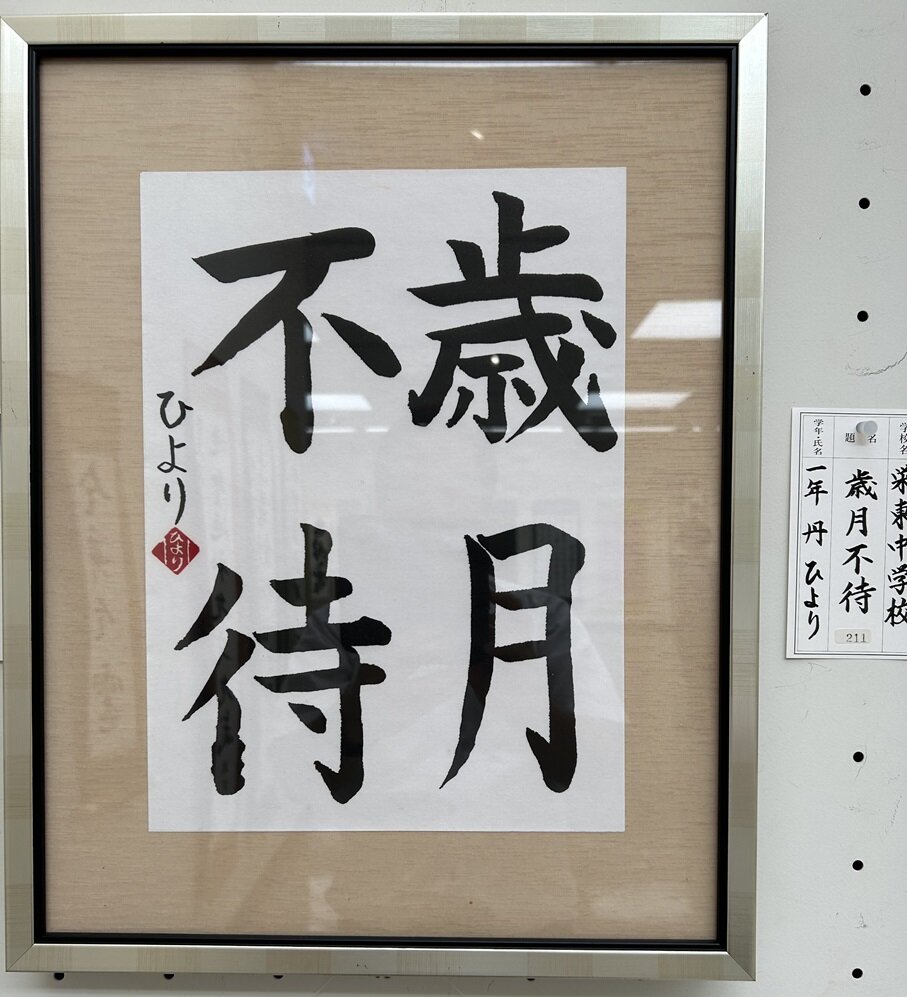 歳月
不待
ひより
ひより
学校名
栄東中学校
題名
歳月不待
211
学年・氏名
一年 丹 ひより